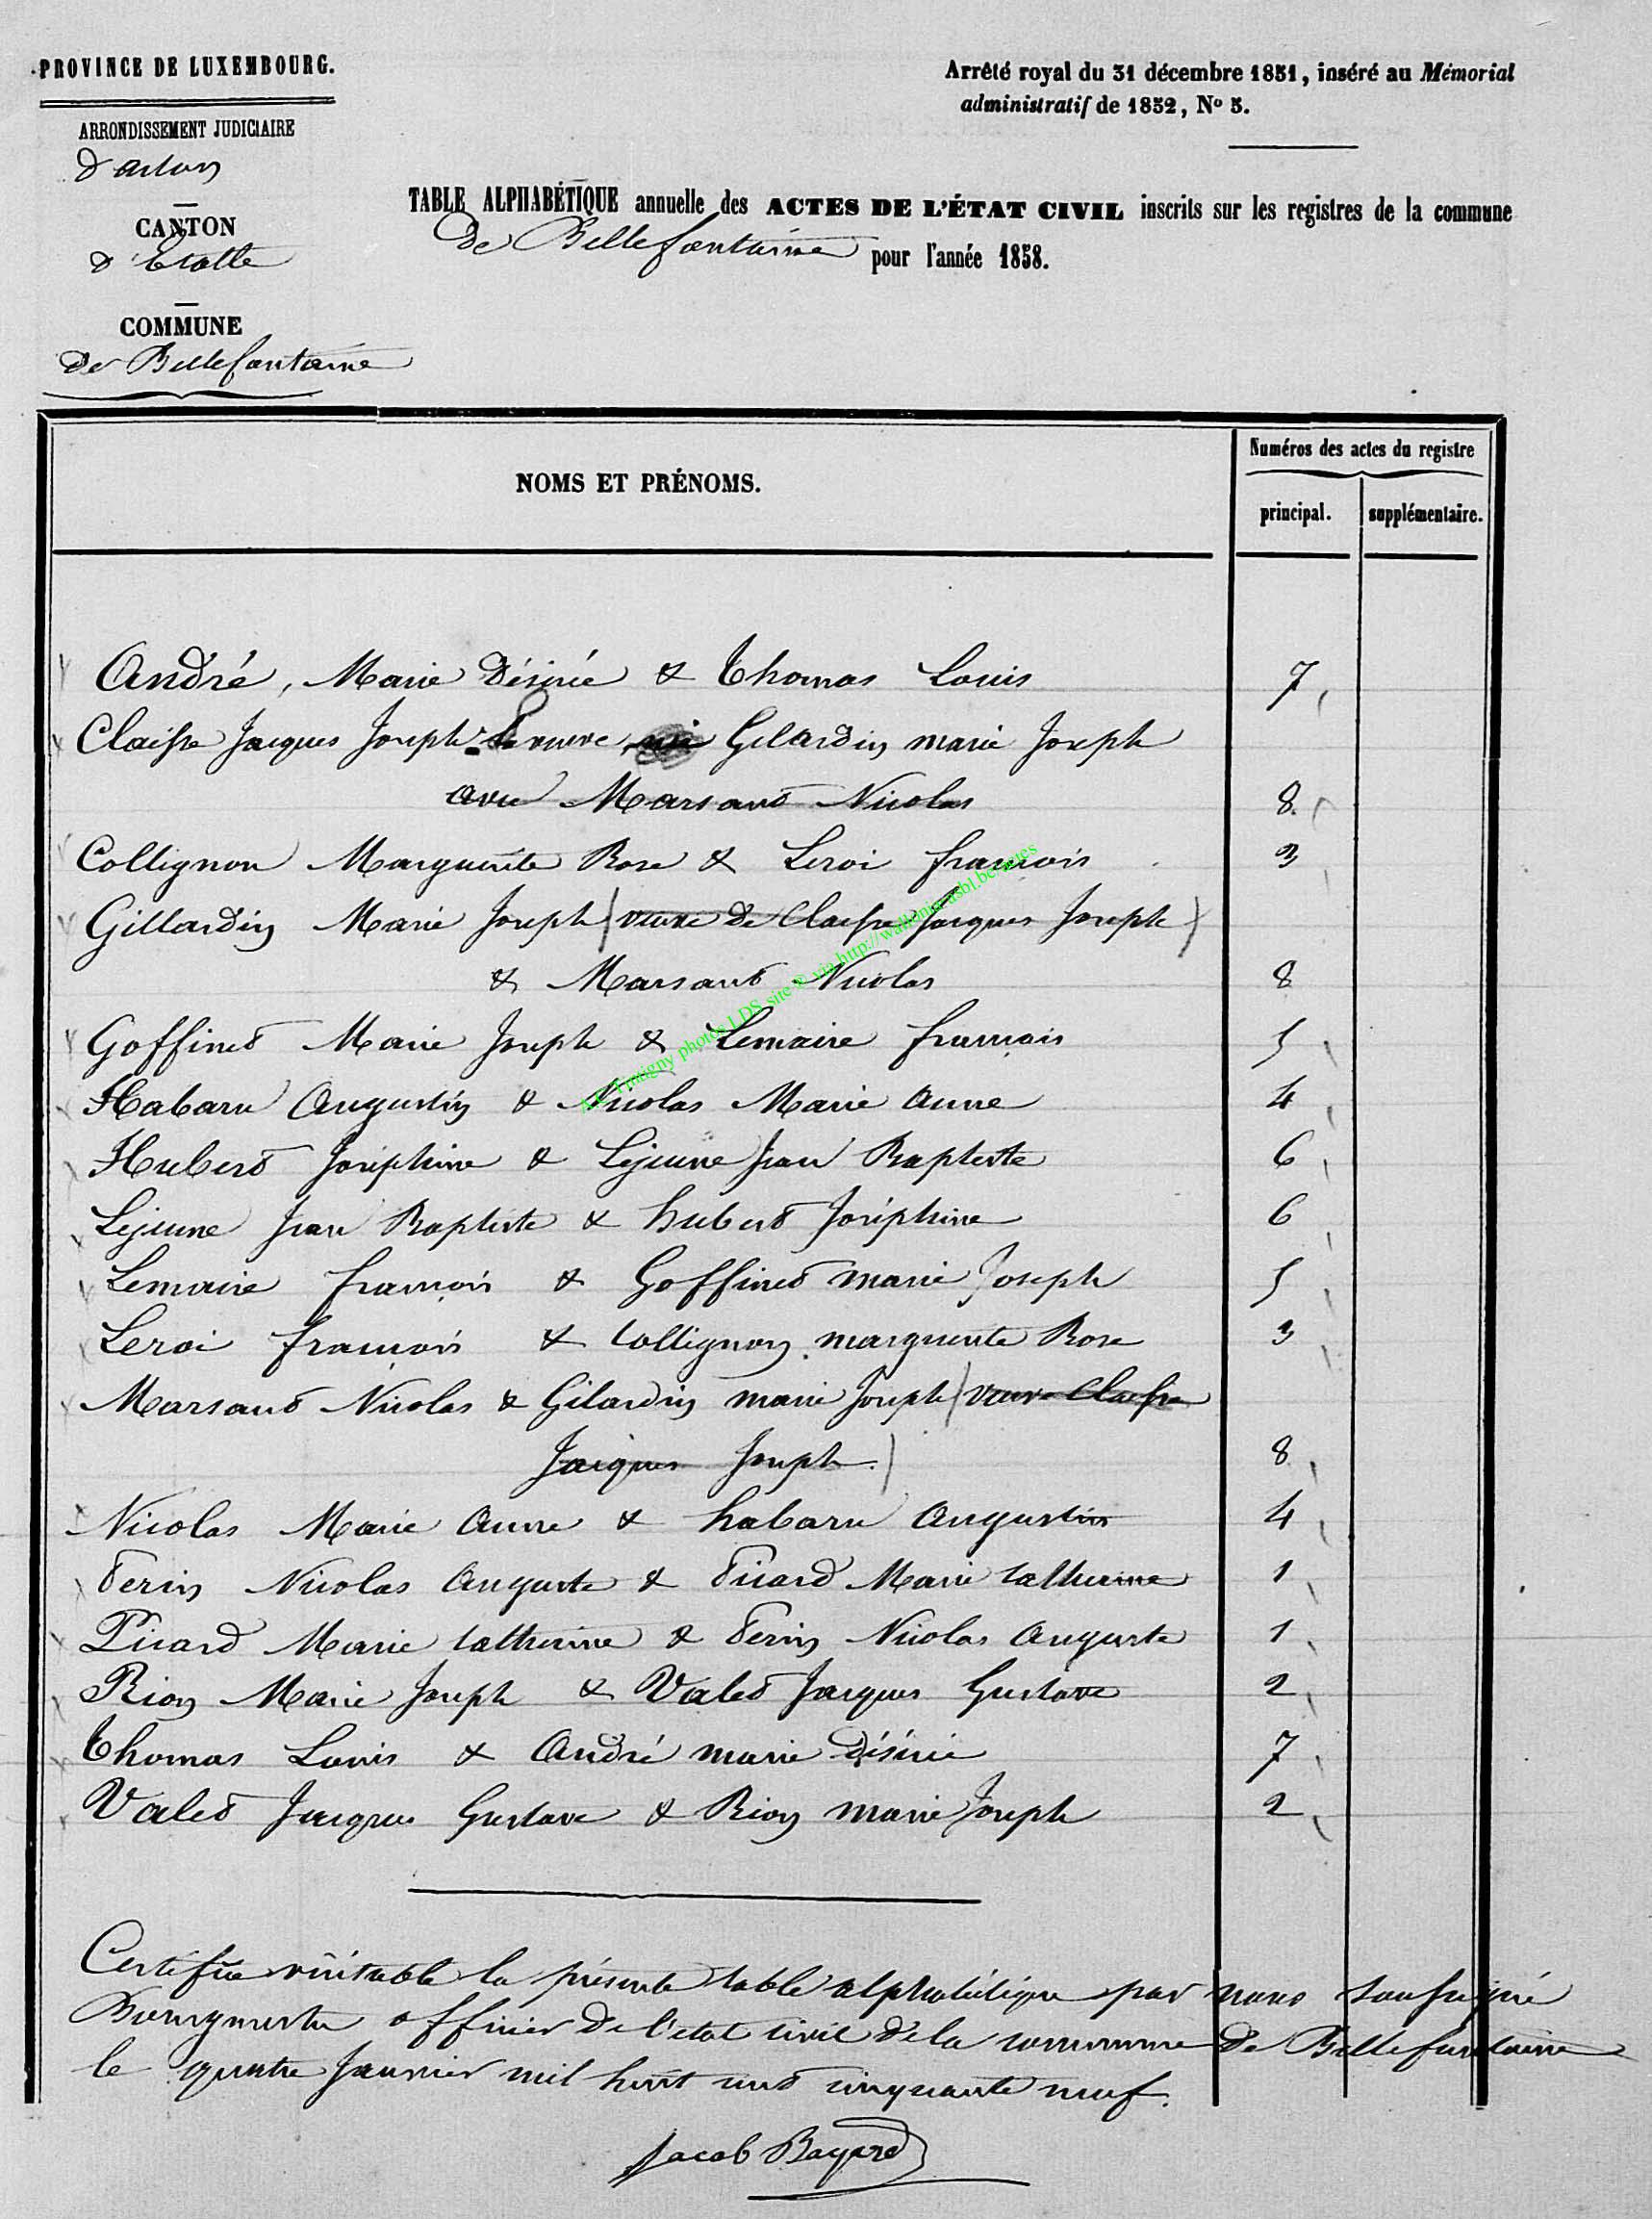 PROVINCE DE LUXEMBOURG.
Arrêté royal du 31 décembre 1851, inséré au Mémorial
administratif de 1852, No 5.
ARRONDISSEMENT JUDICIAIRE
d'arlon
CANTON
d'Etalle
COMMUNE
de Bellefontaine
TABLE ALPHABÉTIQUE annuelle des ACTES DE L'ÉTAT CIVIL inscrits sur les registres de la commune
de Bellefontaine pour l'année 1858.
NOMS ET PRÉNOMS.
Numéros des actes du registre
principal. supplémentaire.
André, Marie Désirée & Thomas Louis 7
Claisse Jacques Joseph veuve Gilardin marie Joseph
avec Marsaud Nicolas 8
Collignon Marguerite Rose & Leroi françois 3
Gillardin Marie Joseph (veuve de Claisse Jacques Joseph)
& Marsaud Nicolas 8
Goffinet Marie Joseph & Lemaire françois 5
Habaru Augustin & Nicolas Marie Anne 4
Hubert Joséphine & Lejeune Jean Baptiste 6
Lejeune Jean Baptiste & hubert Joséphine 6
Lemaire françois & Goffinet marie Joseph 5
Leroi françois & Collignon marguerite Rose 3
Marsaud Nicolas & Gilardin marie Joseph (veuve Claisse
Jacques Joseph.) 8
Nicolas Marie Anne & habaru Augustin 4
Perin Nicolas Auguste & Picard Marie Catherine 1
Picard Marie Catherine & Perin Nicolas Auguste 1
Rion Marie Joseph & Valet Jacques Gustave 2
Thomas Louis & André marie Désirée 7
Valet Jacques Gustave & Rion marie Joseph 2
Certifiée véritable la présente table alphabétique par nous soussigné
Bourgmestre officier de l'état civil de la commune de Bellefontaine
le quatre Janvier mil huit cent cinquante neuf.
Jacob Bayard
photos LDS site via http://wallonia-asbl.be/actes